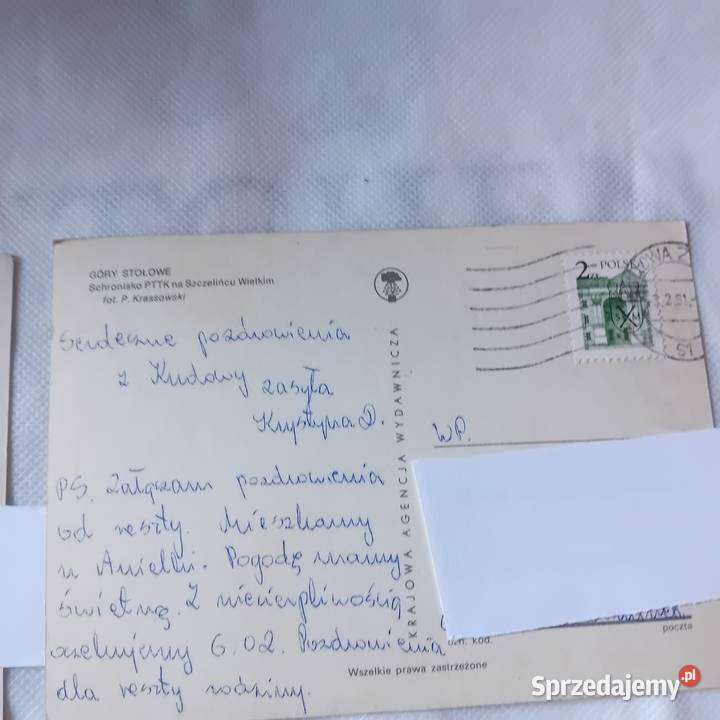 GÓRY STOŁOWE
Schronisko PTTK na Szczelińcu Wielkim
fot. P. Krassowski
Serdeczne pozdrowienia
z Kudowy zasyła
Krystyna D.
PS. Załączam pozdrowienia
od reszty. Mieszkamy
u Anielki. Pogodę mamy
świetną. Z niecierpliwością
oczekujemy 6.02. Pozdrowienia
dla reszty rodziny.
KRAJOWA AGENCJA WYDAWNICZA
2 zł POLSKA
3.2.81
WP.
kod.
poczta
Wszelkie prawa zastrzeżone
Sprzedajemy.pl